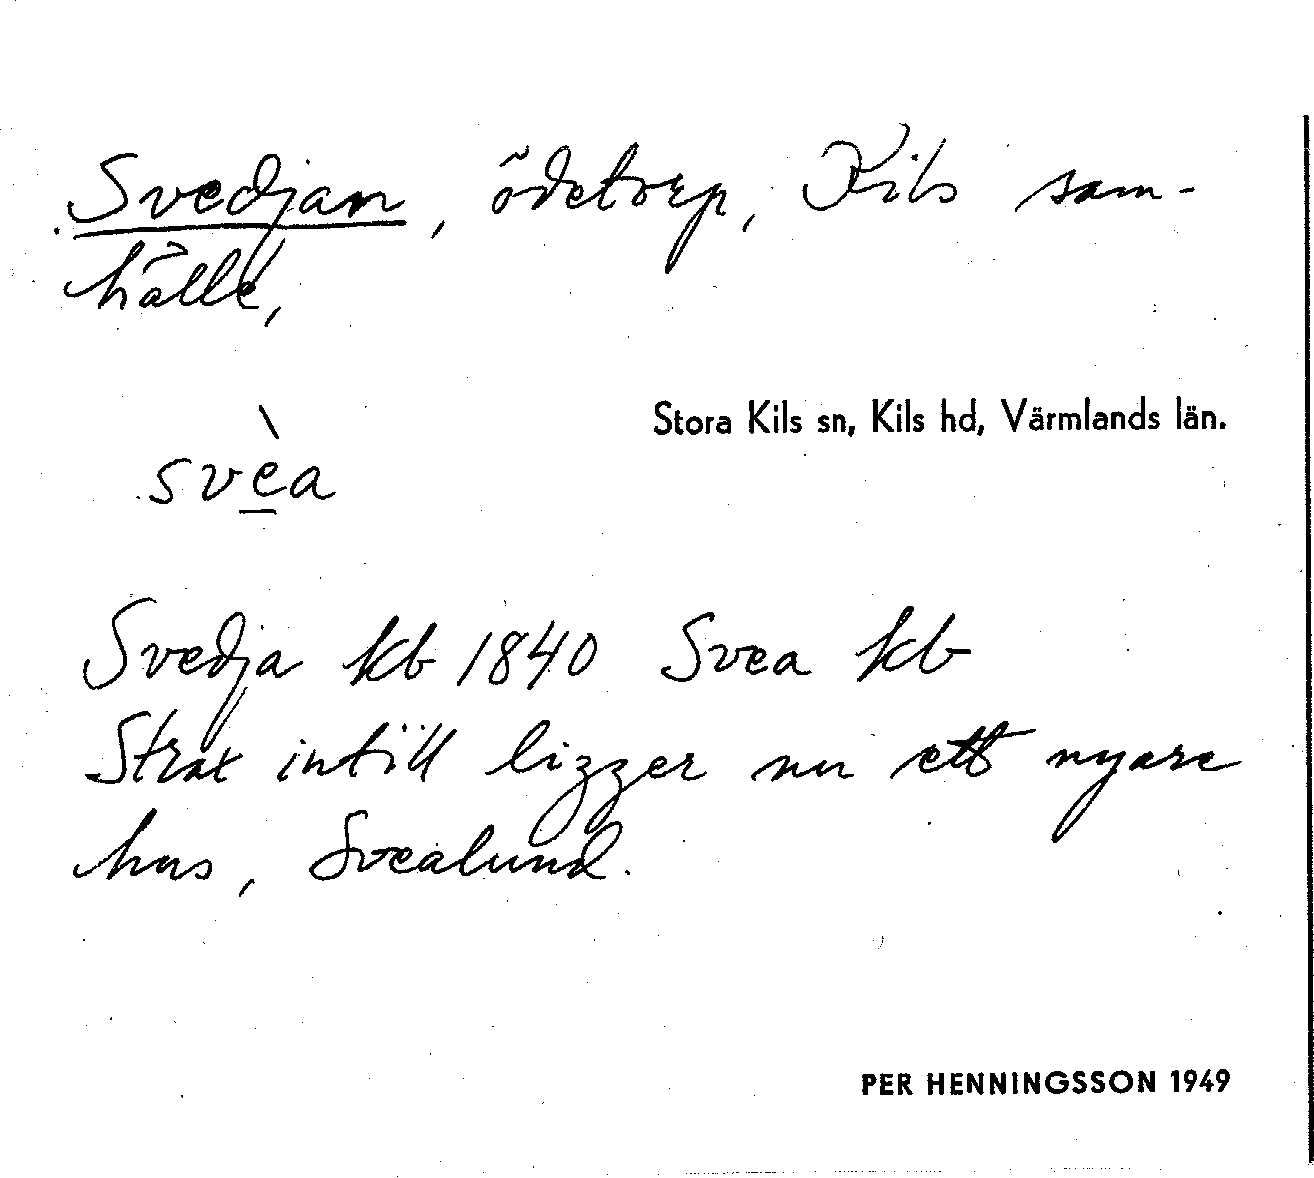 Svedjan, ödetorp, Kils sam-
hälle,
Stora Kils sn, Kils hd, Värmlands län.
svèa
Svedja kb 1840 Svea kb
Strax intill ligger nu ett nyare
hus, Svealund.
PER HENNINGSSON 1949